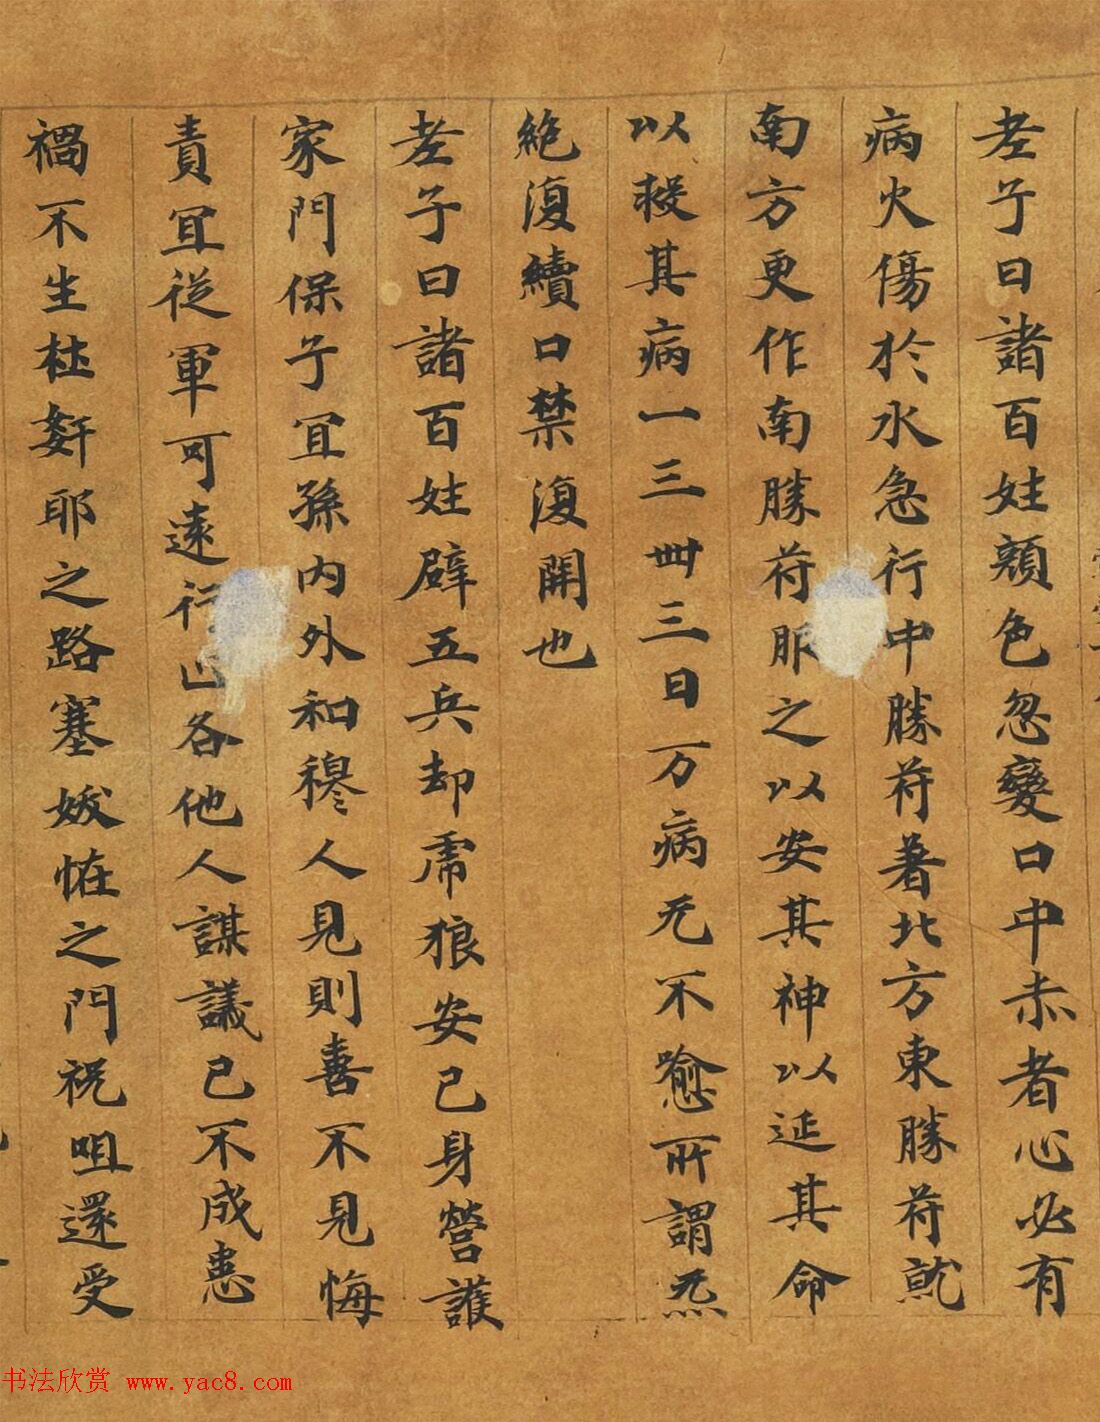 老子曰諸百姓顔色忽變口中赤者心必有
病火傷於水急行中勝符著北方東勝符就
南方更作南勝符服之以安其神以延其命
以救其病一三卌三日万病无不愈所謂炁
絶復續口禁復開也
老子曰諸百姓辟五兵却虎狼安己身營護
家門保子冝孫内外和穆人見則喜不見悔
責冝從軍可遠行 各他人謀議已不成恚
禍不生枉姧耶之路塞妭恠之門祝咀還受
书法欣赏 www.yac8.com